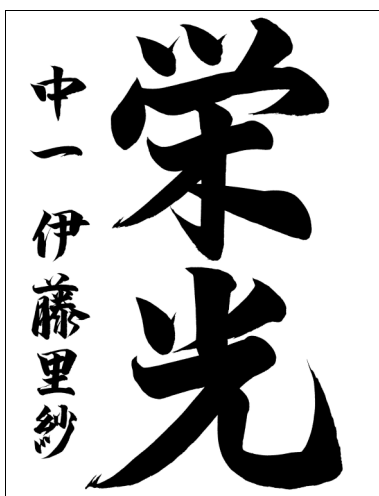 栄光
中一 伊藤里紗